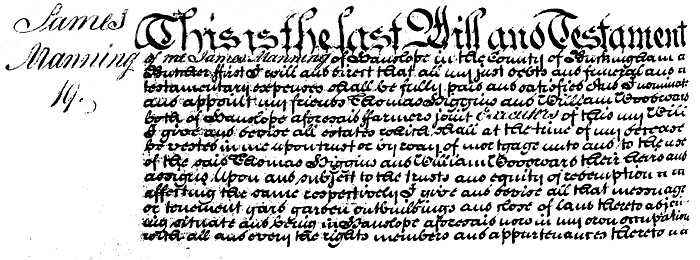 James
Manning
19.
This is the last Will and Testament
of me James Manning of Hanslope in the County of Buckingham a
Butcher ffirst I will and direct that all my just debts and funeral and
testamentary expenses shall be fully paid and satisfied And I nominate
and appoint my friends Thomas Higgins and William Woodward
both of Hanslope aforesaid ffarmers joint Executors of this my Will
I give and devise all estates which shall at the time of my decease
be vested in me upon trust or by way of mortgage unto and to the use
of the said Thomas Higgins and William Woodward their heirs and
assigns Upon and subject to the trusts and equity of redemption
affecting the same respectively I give and devise all that messuage
or tenement yard garden outbuildings and close of land thereto adjoin
ing situate and being in Hanslope aforesaid now in my own occupation
with all and every the rights members and appurtenances thereto